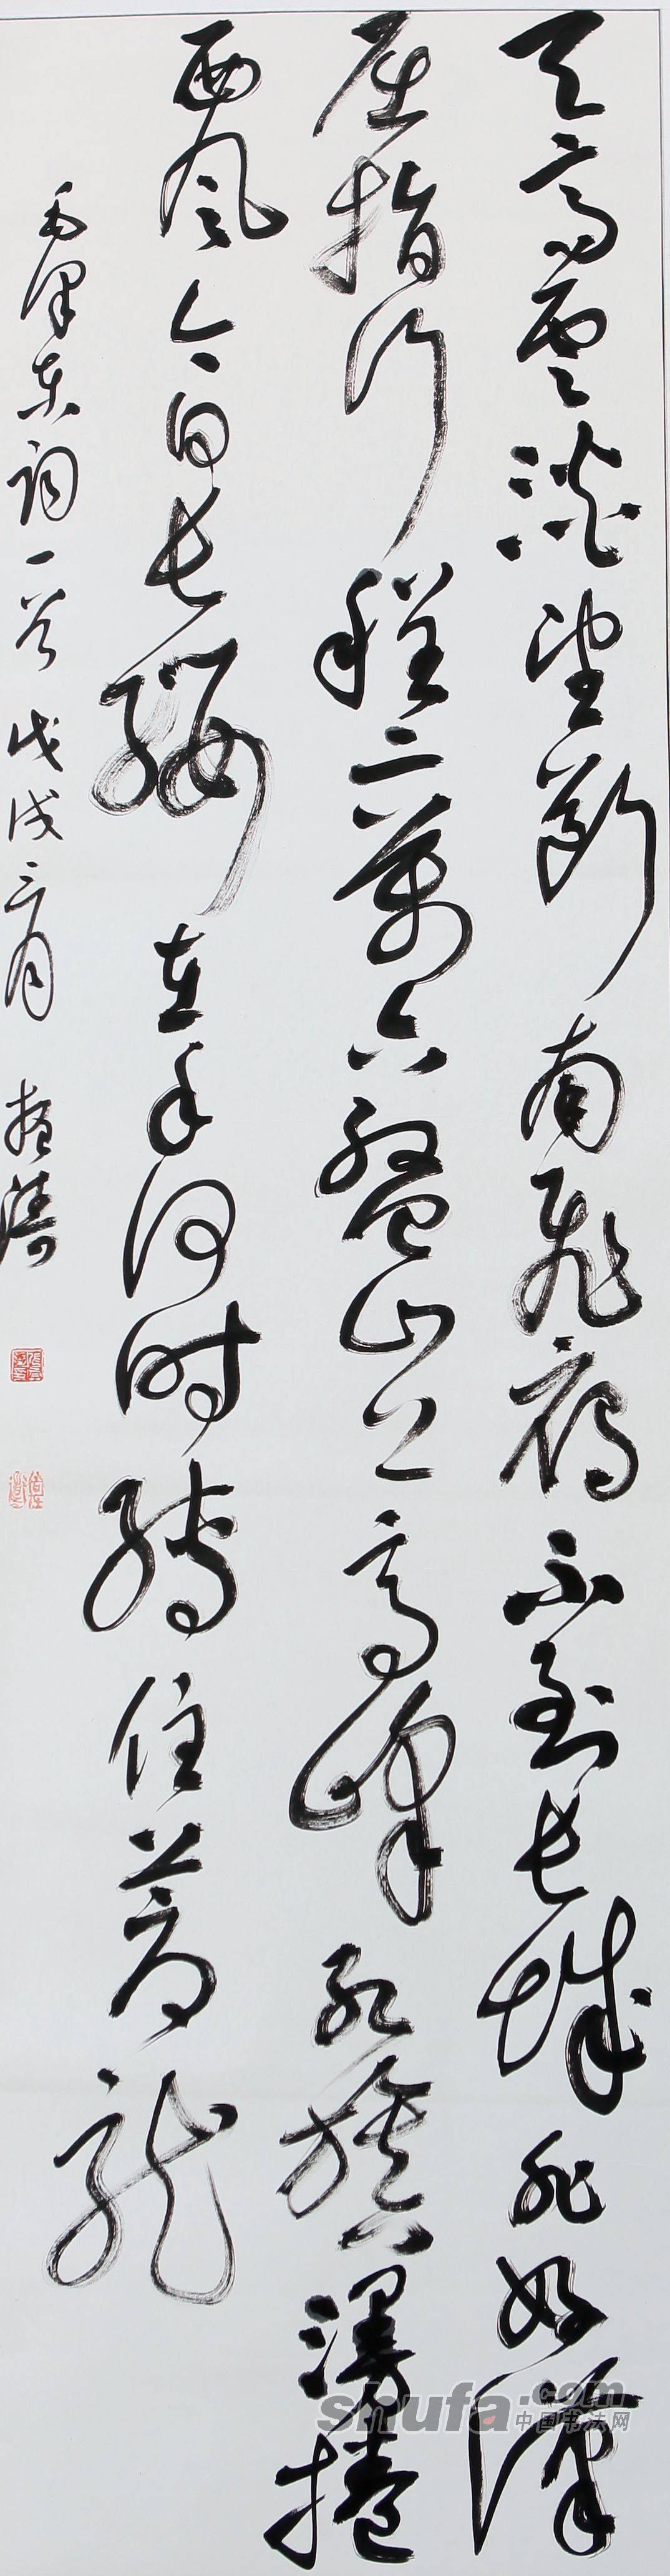 天高云淡望断南飞雁不到长城非好汉
屈指行程二万六盘山上高峰红旗漫卷
西风今日长缨在手何时缚住苍龙
毛泽东词一首戊戌三月振涛
shufa.com
中国书法网